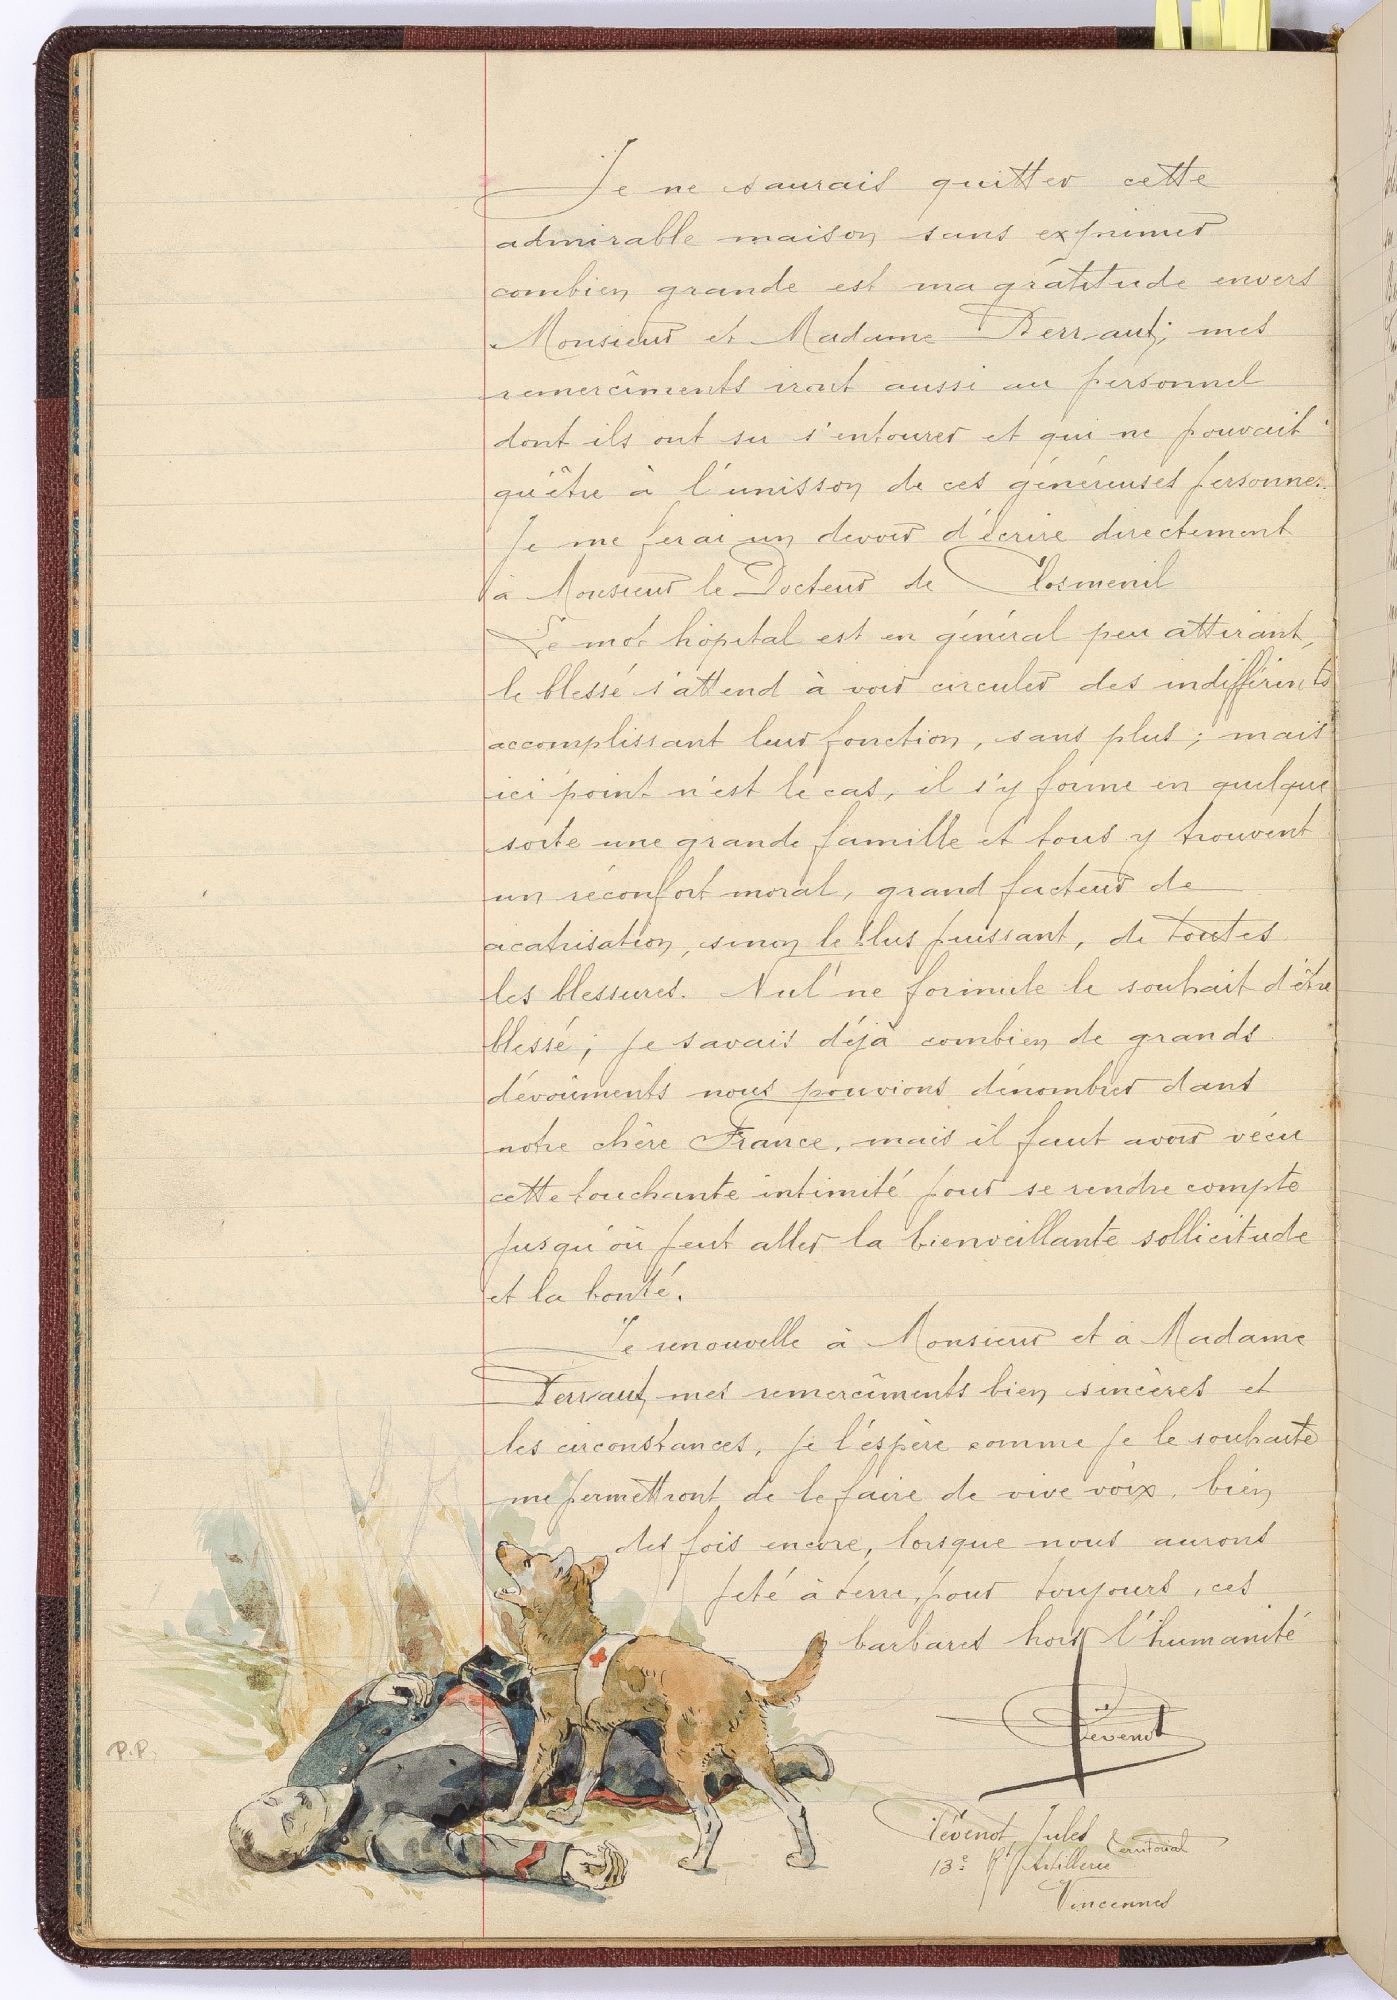 Je ne saurais quitter cette
admirable maison sans exprimer
combien grande est ma gratitude envers
Monsieur et Madame Ferrant; mes
remercîments iront aussi au personnel
dont ils ont su s'entourer et qui ne pouvait
qu'être à l'unisson de ces généreuses personnes.
Je me ferai un devoir d'écrire directement
à Monsieur le Docteur de Closmenil
Le mot hôpital est en général peu attirant,
le blessé s'attend à voir circuler des indifférents
accomplissant leur fonction, sans plus; mais
ici point n'est le cas, il s'y forme en quelque
sorte une grande famille et tous y trouvent
un réconfort moral, grand facteur de
cicatrisation, sinon le plus puissant, de toutes
les blessures. Nul ne formule le souhait d'être
blessé; je savais déjà combien de grands
dévoûments nous pouvions dénombrer dans
notre chère France, mais il faut avoir vécu
cette touchante intimité pour se rendre compte
jusqu'où peut aller la bienveillante sollicitude
et la bonté.
Je renouvelle à Monsieur et à Madame
Ferrant, mes remercîments bien sincères et
les circonstances, je l'espère comme je le souhaite
me permettront de le faire de vive voix, bien
des fois encore, lorsque nous aurons
jeté à terre, pour toujours, ces
barbares hors l'humanité
Pévenot
Pévenot, Jules
13e Rt Artillerie Territorial
Vincennes
P.P.